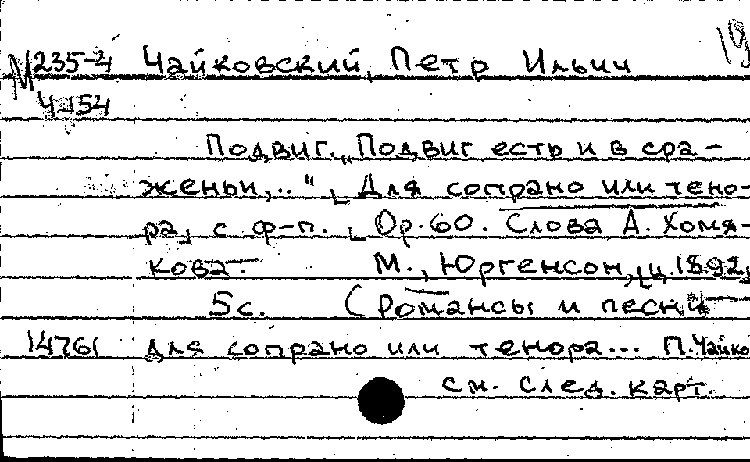 19
М235-4 Чайковский, Петр Ильич
Ч-154
Подвиг. „Подвиг есть и в сра-
женьи,.." [Для сопрано или тено-
ра] с ф-п. [Ор.60. Слова А. Хомя-
кова. М., Юргенсон, [ц. 1892]
5с. (Романсы и песни
14761 для сопрано или тенора... П. Чайко
см. след. карт.